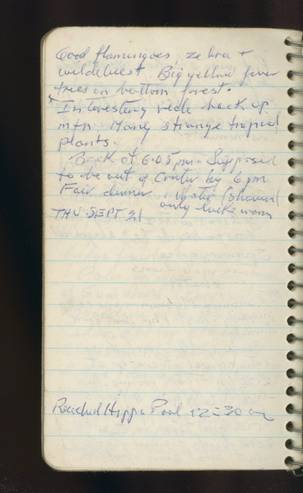 Good flamingoes, zebra +
wildebeest. Big yellow fever
trees in bottom forest.
Interesting ride back up
mtn. Many strange tropical
plants.
Back at 6:05 pm. Supposed
to be out of Crater by 6 pm
Fair dinner. Water (shower)
only lukewarm
THU SEPT 21
Reached Hippo Pool 12:30